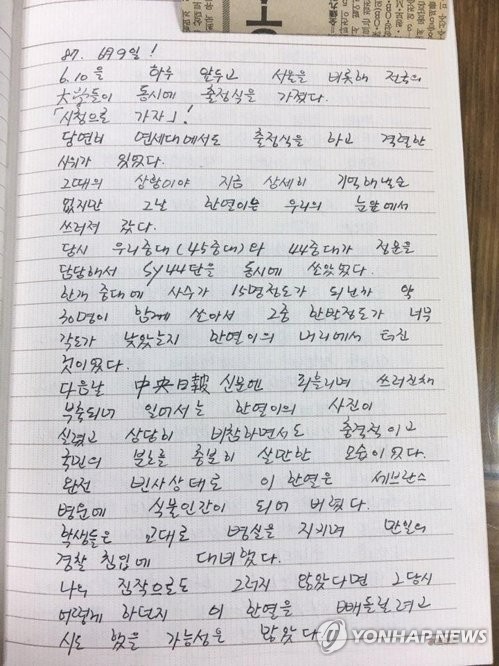 87. 6月9일!
6.10을 하루 앞두고 서울을 비롯해 전국의
大学들이 동시에 출정식을 가졌다.
「시청으로 가자」!
당연히 연세대에서도 출정식을 하고 격렬한
시위가 있었다.
그때의 상황이야 지금 상세히 기억해낼순
없지만 그날 한열이는 우리의 눈앞에서
쓰러져 갔다.
당시 우리중대(45중대)와 44중대가 정문을
담당해서 SY44탄을 동시에 쏘았었다.
한개 중대에 사수가 15명정도가 되니까 약
30명이 함께 쏘아서 그중 한발정도가 너무
각도가 낮았는지 한열이의 머리에서 터진
것이었다.
다음날 中央日報 신문엔 피흘리며 쓰러진채
부축되어 일어서는 한열이의 사진이
실렸고 상당히 비참하면서도 충격적이고
국민의 분노를 충분히 살만한 모습이었다.
완전 빈사상태로 이한열은 세브란스
병원에 식물인간이 되어 버렸다.
학생들은 교대로 병실을 지키며 만일의
경찰 침입에 대비했다.
나의 짐작으로도 그러지 않았다면 그당시
어떻게 하던지 이한열을 빼돌릴려고
시도 했을 가능성은 많았다
YONHAP NEWS